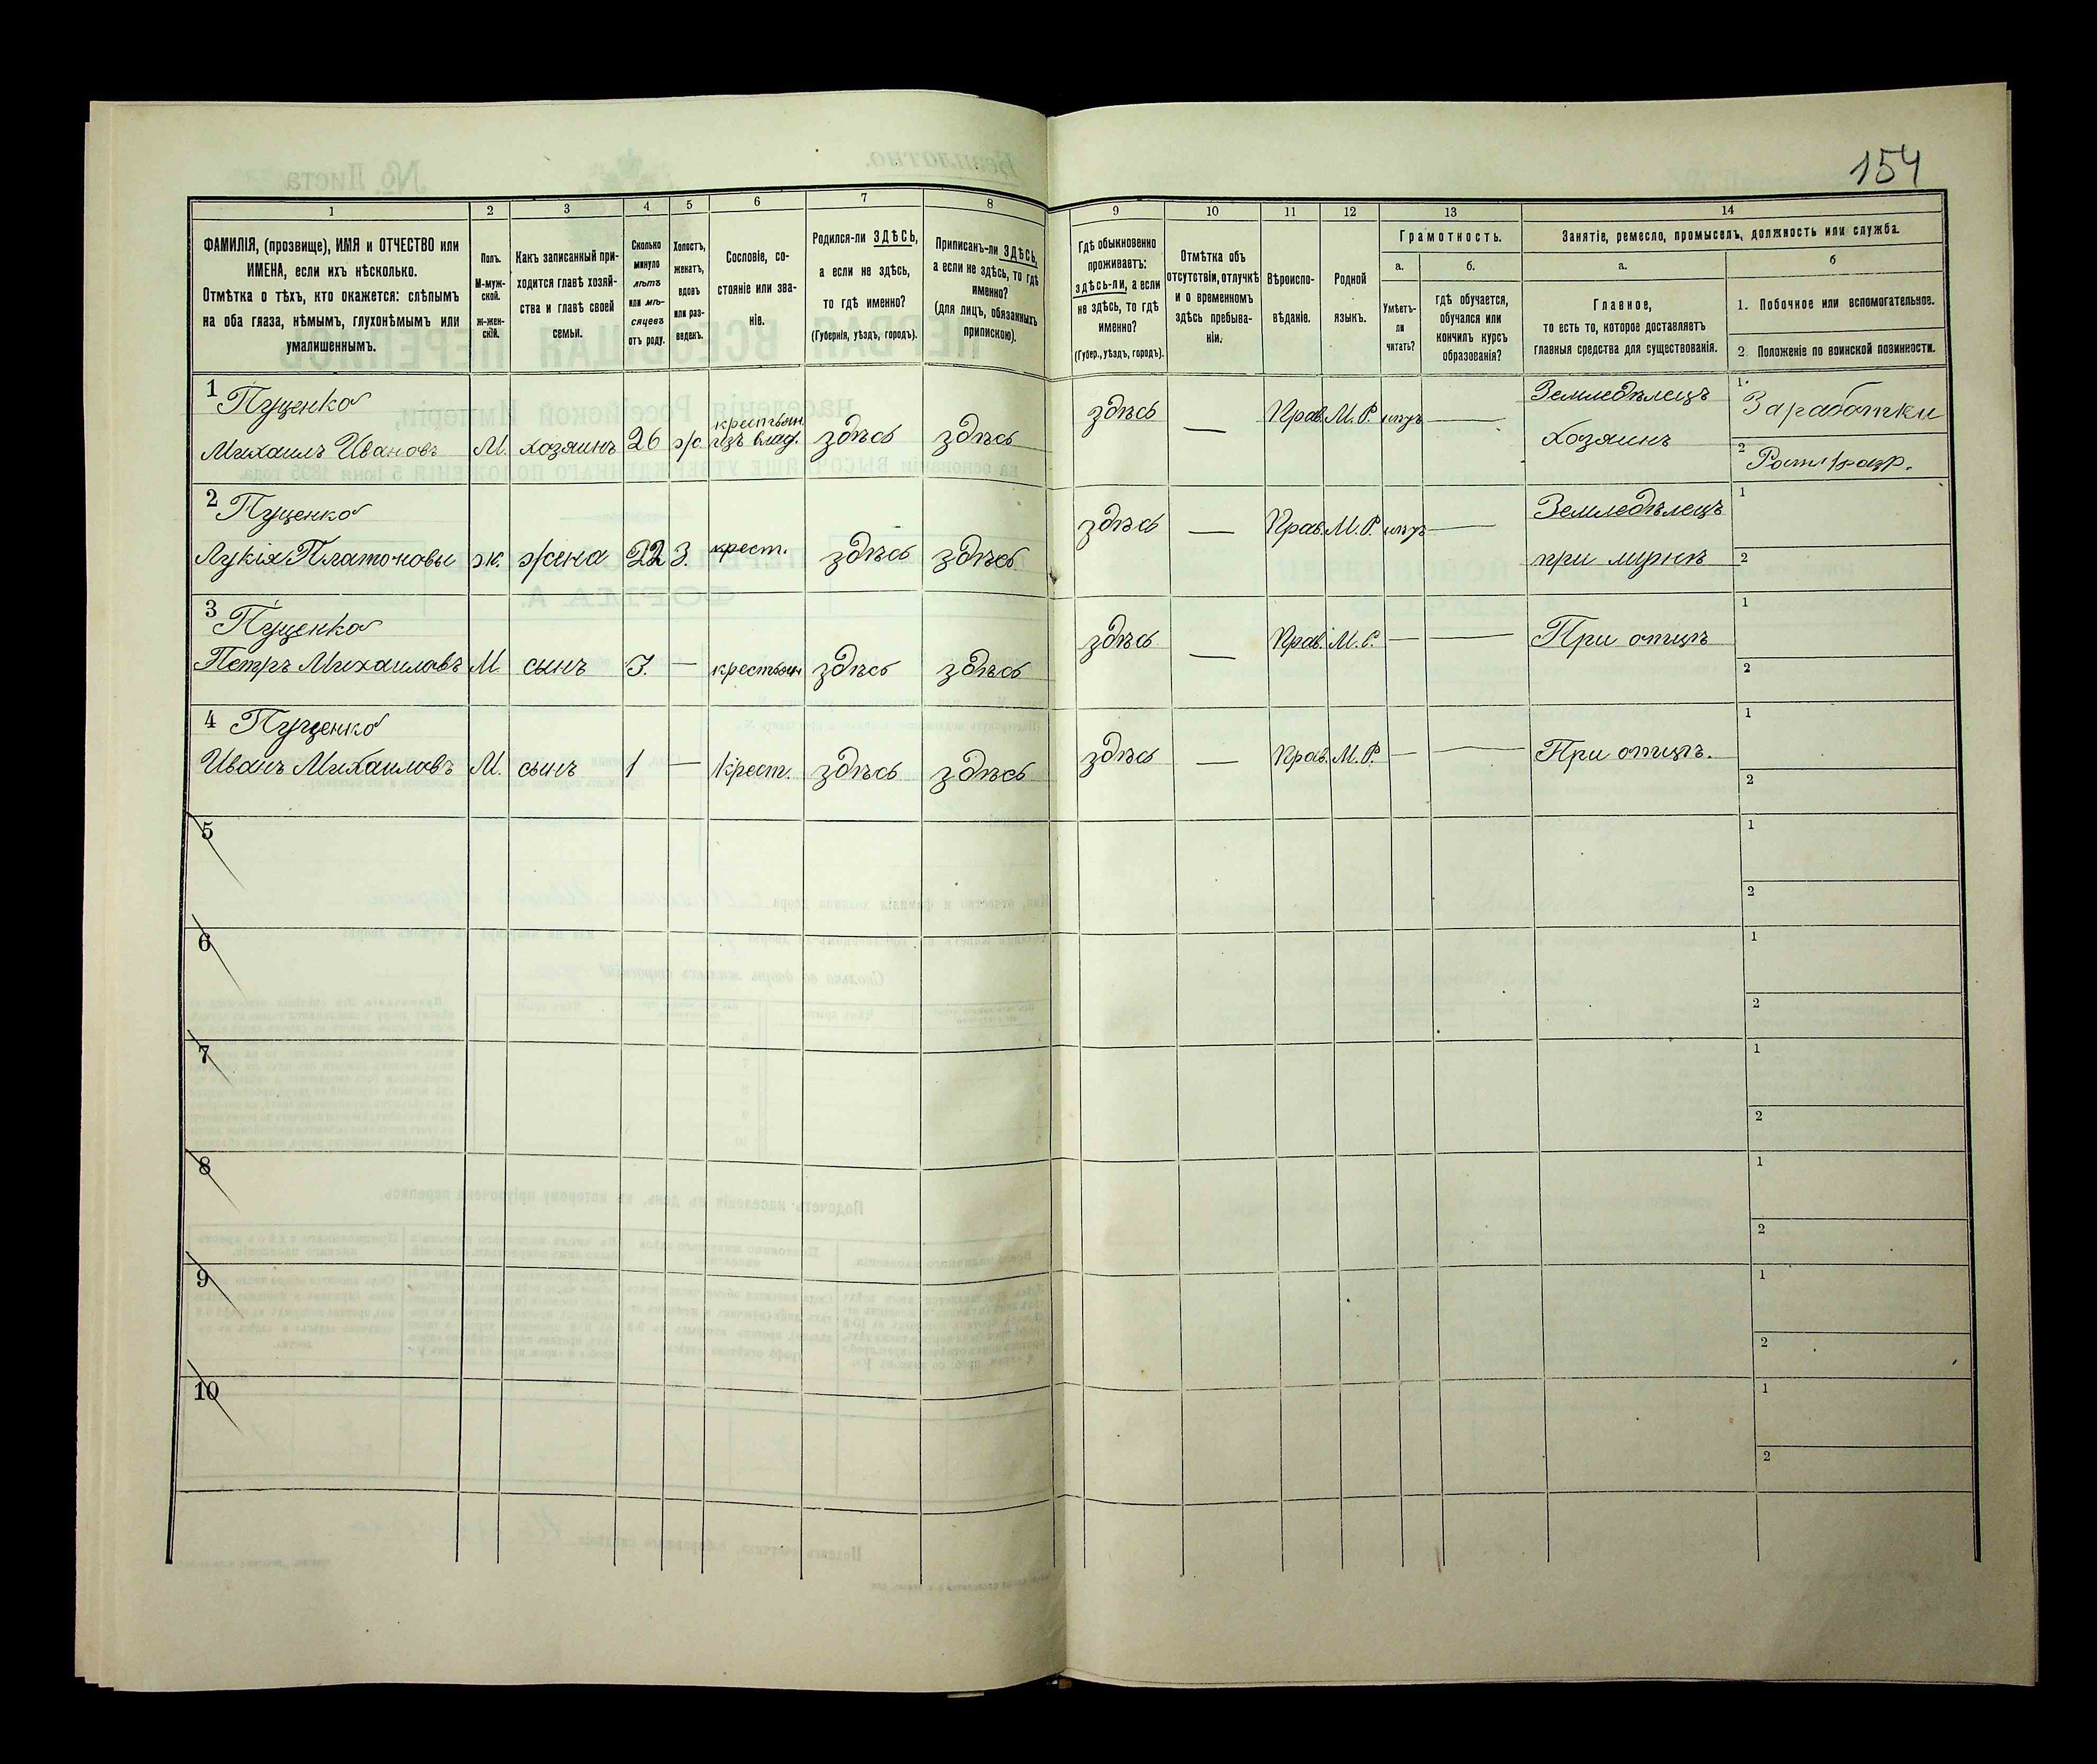 154
1
2
3
4
5
6
7
8
9
10
11
12
13
14
ФАМИЛІЯ, (прозвище), ИМЯ и ОТЧЕСТВО или
ИМЕНА, если ихъ нѣсколько.
Отмѣтка о тѣхъ, кто окажется: слѣпымъ
на оба глаза, нѣмымъ, глухонѣмымъ или
умалишеннымъ.
Полъ.
М-муж-
ской.
ж-жен-
скій.
Какъ записанный при-
ходится главѣ хозяй-
ства и главѣ своей
семьи.
Сколько
минуло
лѣтъ
или мѣ-
сяцевъ
отъ роду.
Холостъ,
женатъ,
вдовъ
или раз-
веденъ.
Сословіе, со-
стояніе или зва-
ніе.
Родился-ли ЗДѢСЬ,
а если не здѣсь,
то гдѣ именно?
(Губернія, уѣздъ, городъ).
Приписанъ-ли ЗДѢСЬ,
а если не здѣсь, то гдѣ
именно?
(для лицъ, обязанныхъ
припискою).
Гдѣ обыкновенно
проживаетъ:
здѣсь-ли, а если
не здѣсь, то гдѣ
именно?
(Губер., уѣздъ, городъ).
Отмѣтка объ
отсутствіи, отлучкѣ
и о временномъ
здѣсь пребыва-
ніи.
Вѣроиспо-
вѣданіе.
Родной
языкъ.
Грамотность.
а.
Умѣетъ-
ли
читать?
б.
гдѣ обучается,
обучался или
кончилъ курсъ
образованія?
Занятіе, ремесло, промыселъ, должность или служба.
а.
Главное,
то есть то, которое доставляетъ
главныя средства для существованія.
б
1. Побочное или вспомогательное.
2. Положеніе по воинской повинности.
1 Пуценко
Михаилъ Ивановъ М. хозяинъ 26 ж. крестьян. изъ влад. здѣсь здѣсь здѣсь — Прав. М. Р. нѣтъ — Земледѣлецъ
Хозяинъ
1 Заработки
2 Ратн. 1 разр.
2 Пуценко
Лукія Платонова ж. жена 22 З. крест. здѣсь здѣсь здѣсь — Прав. М. Р. нѣтъ — Земледѣлецъ
при мужѣ
1
2
3 Пуценко
Петръ Михаиловъ М. сынъ 3. — крестьян здѣсь здѣсь здѣсь — Прав. М. Р. — — При отцѣ
1
2
4 Пуценко
Иванъ Михаиловъ М. сынъ 1 — Крест. здѣсь здѣсь здѣсь — Прав. М. Р. — — При отцѣ.
1
2
5
1
2
6
1
2
7
1
2
8
1
2
9
1
2
10
1
2